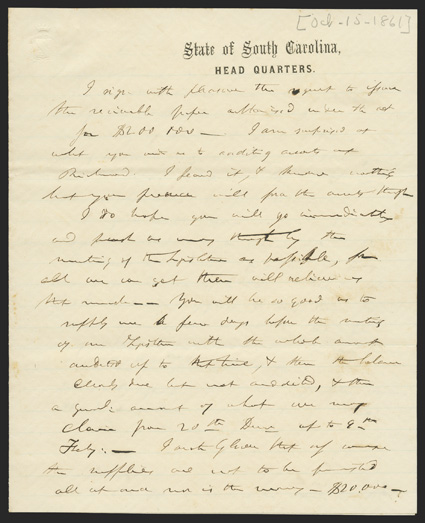 [Oct-15-1861]
State of South Carolina,
HEAD QUARTERS.
I sign with pleasure the request to issue
the receivable paper authorized under the act
for $200.000 — I am surprised at
what you write as to auditing accounts at
Richmond. I feared it, &
but your presence will
I do hope you will go immediately
and as many the
meeting of the Legislature as possible, for
all we can get there will relieve us
that much — You will be so good as to
supply me a few days before the meeting
of our Legislature with the whole amount
audited up to that time, & then the balance
clearly due but not audited, & then
a account of what we may
claim from 20th Decr up to 8th
Feby: —
the supplies are not to be furnished
all at once nor is the money — $20,000 —